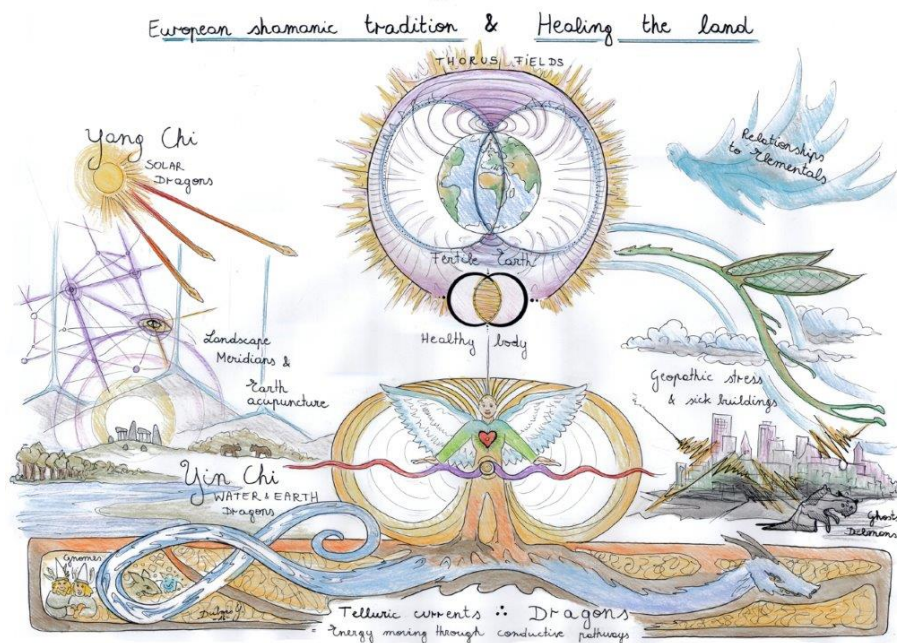 European shamanic tradition & Healing the land
THORUS FIELDS
Yang Chi
SOLAR
DRAGONS
Relationships
to Elementals
Fertile Earth
Healthy body
Landscape
Meridians &
Earth
acupuncture
Geopathic stress
& sick buildings
Yin Chi
WATER & EARTH
Dragons
Ghosts
Delmons
Gnomes
Telluric currents ∴ Dragons
Energy moving through conductive pathways